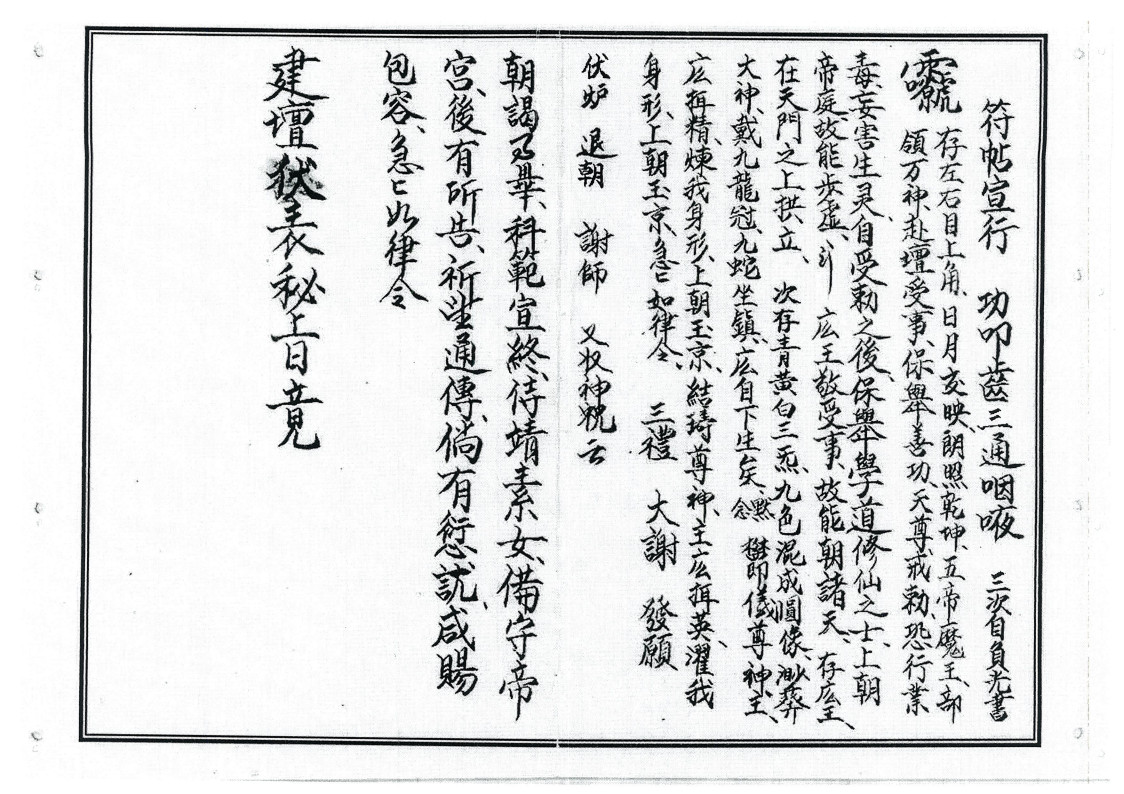 符帖宣行 功叩齒三通咽液 三次自負光書
存左右目上角、日月交映、朗照乾坤、五帝魔王、部
領万神、赴壇受事、保舉善功、天尊戒勅、恐行業
毒、妄害生灵、自受勅之後、保舉學道修仙之士、上朝
帝庭、故能步虛、 広王敬受事、故能朝諸天、存広王、
在天門之上拱立、 次存青黄白三炁、九色混成圓像、渺莽
大神、戴九龍冠、九蛇坐鎮、広自下生矣、默念 儀尊神、主
広揖精、煉我身形、上朝玉京、結璘尊神、主広揖英、濯我
身形、上朝玉京、急匕如律令、 三禮 大謝 發願
伏炉 退朝 謝師 又收神祝云
朝謁事畢、科範宣終、侍靖素女、備守帝
宮、後有所告、祈望通傳、倘有愆訧、咸賜
包容、急匕如律令
建壇 秘上日竟